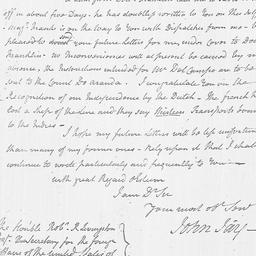 off in about five Days. he has doubtless written to You on this Subject
thanks is on the way to You with Dispatches from me
pleased to send your future Letters for me under cover to Doctr
Franklin. no Inconveniences will at present be caused by
the Instructions intended for Mr Del Campo are to be
sent to the Count De aranda. I congratulate You on the
Recognition of our Independence by the Dutch. The french have
lost a Ship of the Line and they say thirteen Transports bound
to the Indies.
I hope my future Letters will be less unpleasing
than many of my former ones. Rely upon it that I shall
continue to write particularly and frequently to You.
with great Regard & Esteem
I am Dr Sir
Your most obt Servt
John Jay
The Honble Robt R Livingston
Esqr Secretary for the Foreign
Affairs of the United States of